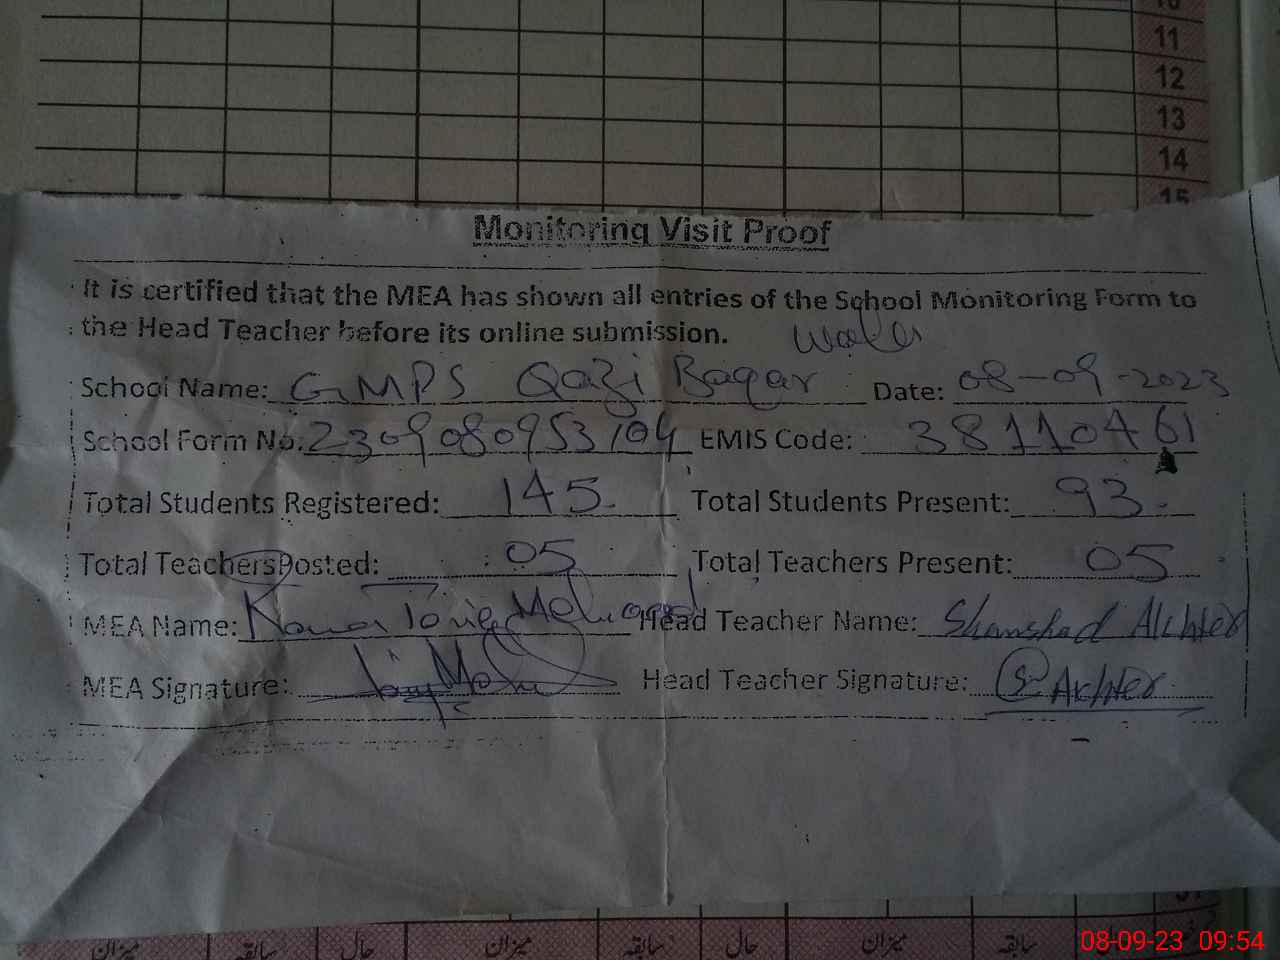 10
11
12
13
14
15
Monitoring Visit Proof
It is certified that the MEA has shown all entries of the School Monitoring Form to
the Head Teacher before its online submission.
Wala
School Name: GMPS Qazi Baqar Date: 08-09-2023
School Form No: 2309080953104 EMIS Code: 38110461
Total Students Registered: 145 Total Students Present: 93
Total Teachers Posted: 05 Total Teachers Present: 05
MEA Name: Head Teacher Name: Shamshad Akhter
MEA Signature: Head Teacher Signature: Akhter
میزان سابقہ حال میزان سابقہ حال میزان سابقہ
08-09-23 09:54